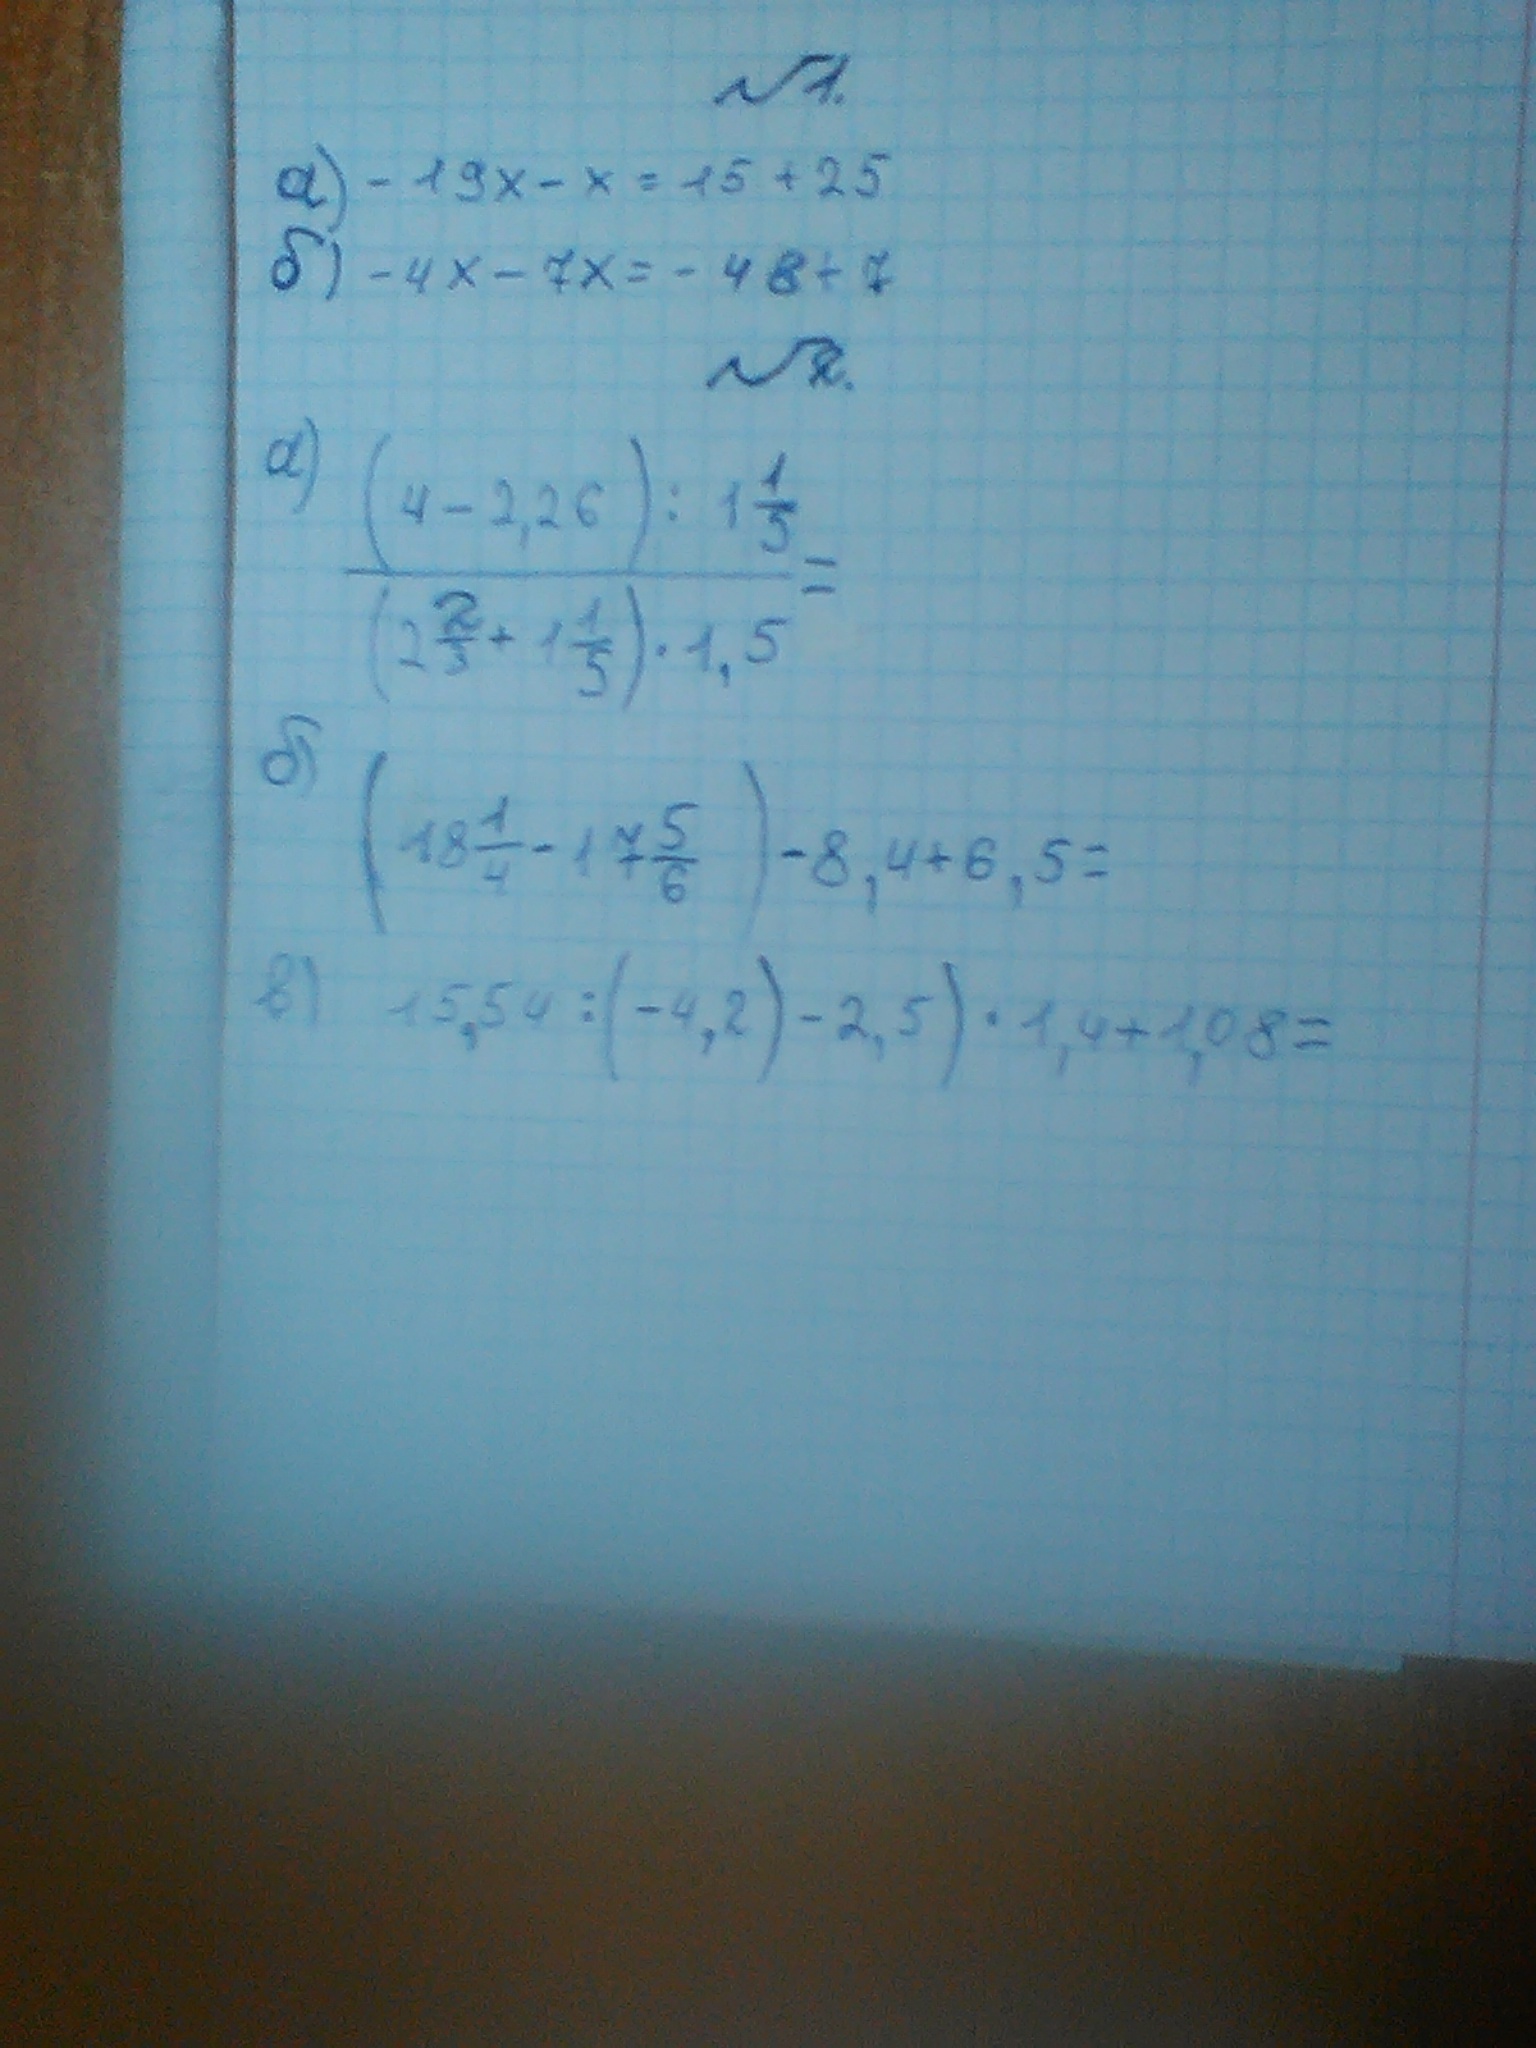 №1.
а) -19x - x = 15 + 25
б) -4x - 7x = -48 + 7
№2.
а) (4 - 2,26) : 1 1/5
/ (2 2/3 + 1 1/5) · 1,5 =
б) (18 1/4 - 17 5/6) - 8,4 + 6,5 =
в) 15,54 : (-4,2) - 2,5) · 1,4 + 1,08 =